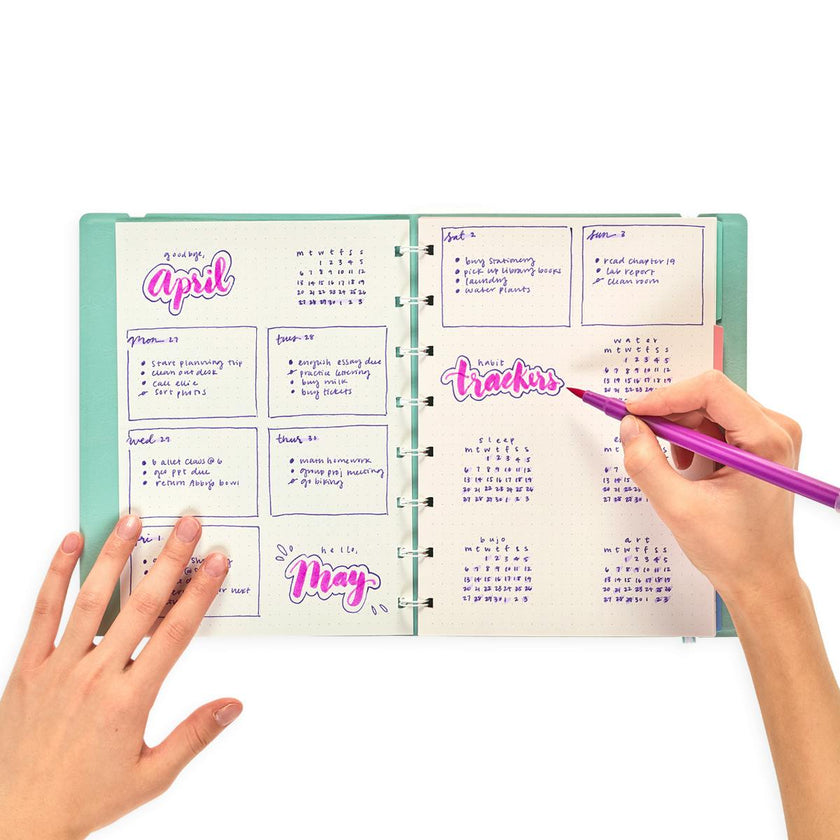 goodbye,
April
m t w t f s s
1 2 3 4 5
6 7 8 9 10 11 12
13 14 15 16 17 18 19
20 21 22 23 24 25 26
27 28 29 30 1 2 3
mon 27
start planning trip
clean out desk
call ellie
sort photos
tues 28
english essay due
practice lettering
buy milk
buy tickets
wed 29
ballet class @ 6
gov ppt due
return Abby's bowl
thur 30
math homework
group proj meeting
go biking
fri 1
next
hello,
May
sat 2
buy stationery
pick up library books
laundry
water plants
sun 3
read chapter 19
lab report
clean room
habit
trackers
water
m t w t f s s
1 2 3 4 5
6 7 8 9 10 11 12
13 14 15 16
sleep
m t w t f s s
1 2 3 4 5
6 7 8 9 10 11 12
13 14 15 16 17 18 19
20 21 22 23 24 25 26
27 28 29 30 1 2 3
bujo
m t w t f s s
1 2 3 4 5
6 7 8 9 10 11 12
13 14 15 16 17 18 19
20 21 22 23 24 25 26
27 28 29 30 1 2 3
art
m t w t f s s
1 2 3 4 5
6 7 8 9 10 11 12
13 14 15 16 17 18 19
20 21 22 23 24 25 26
27 28 29 30 1 2 3